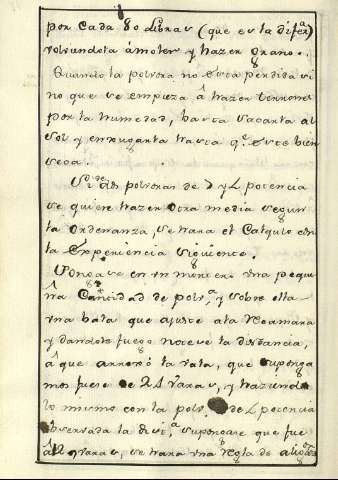 por Cada 80 libras (que es la difer.ª)
volviendola â moler y hazer grano.
Quando la polvora no està perdida si
no que se empieza â hazer terrones
por la humedad, basta sacarla al
sol y enjugarla hasta q.e este bien
seca.
Si de dos polvoras de y L potencia
se quiere hazer otra media segun
la Ordenanza, se hara el Calculo con
la Experiencia siguiente.
Pongase en un mortero una peque
ña Cantidad de polv.ª y sobre ella
una bala que ajuste a la Recamara
y dandole fuego notese la distancia,
â que arrojó la vala, que suponga
mos fuese de 24 varas, y haziendo
lo mismo con la polv.ª de L potencia
observada la dist.ª supongase que fue
varas, se hara una regla de aligaz.on